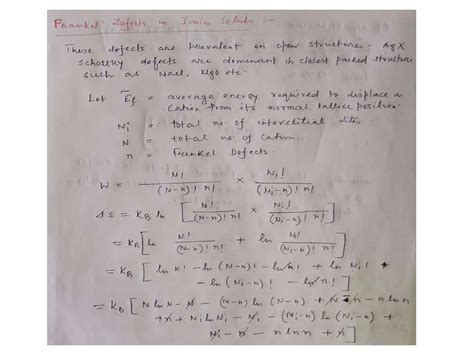 Frankel Defects in Ionic Solids :-
These defects are prevalent in open structures - AgX
Schottky defects are dominant in closest packed structure
such as NaCl, MgO etc.
Let Ef = average energy required to displace a
Cation from its normal lattice position.
Ni = total no. of interstitial sites.
N = total no of Cation
n = Frenkel Defects.
W = N! / (N-n)! n! × Ni! / (Ni-n)! n!
Δs = KB ln [ N! / (N-n)! n! × Ni! / (Ni-n)! n! ]
= KB [ ln N! / (N-n)! n! + ln Ni! / (Ni-n)! n! ]
= KB [ ln N! - ln (N-n)! - ln n! + ln Ni!
- ln (Ni-n)! - ln n! ]
= KB [ N ln N - N - (N-n) ln (N-n) + N - n - n ln n
+ n + Ni ln Ni - Ni - (Ni-n) ln (Ni-n) +
Ni - n - n ln n + n ]